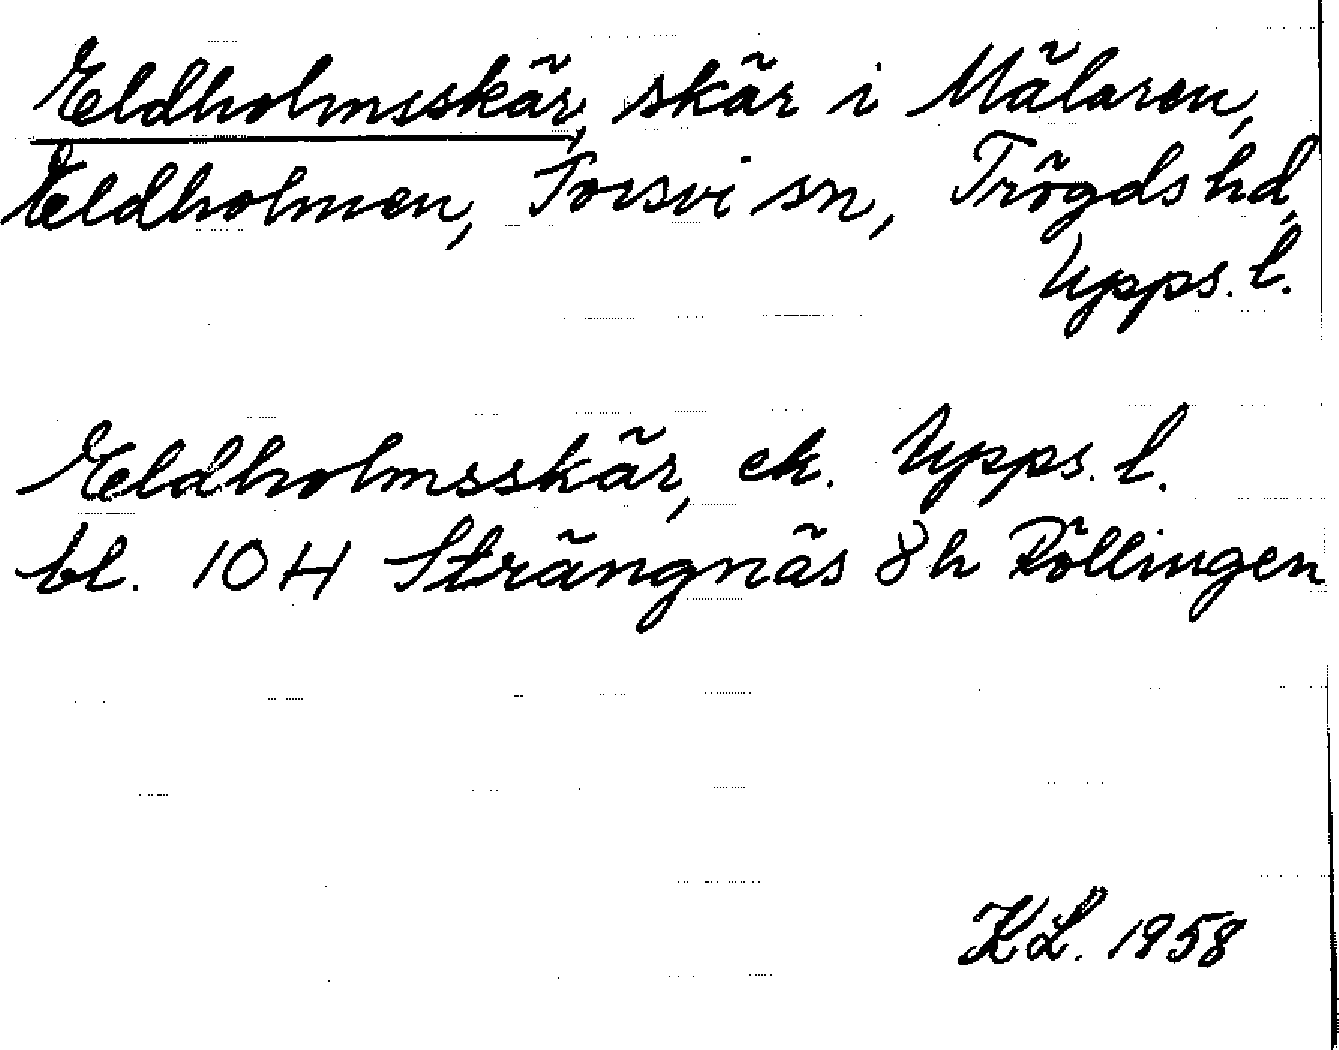 Eldholmsskär, skär i Mälaren,
Eldholmen, Torsvi sn, Trögds hd,
Upps. l.
Eldholmsskär, ek. Upps. l.
bl. 10 H Strängnäs 8 h Föllingen
KL. 1958